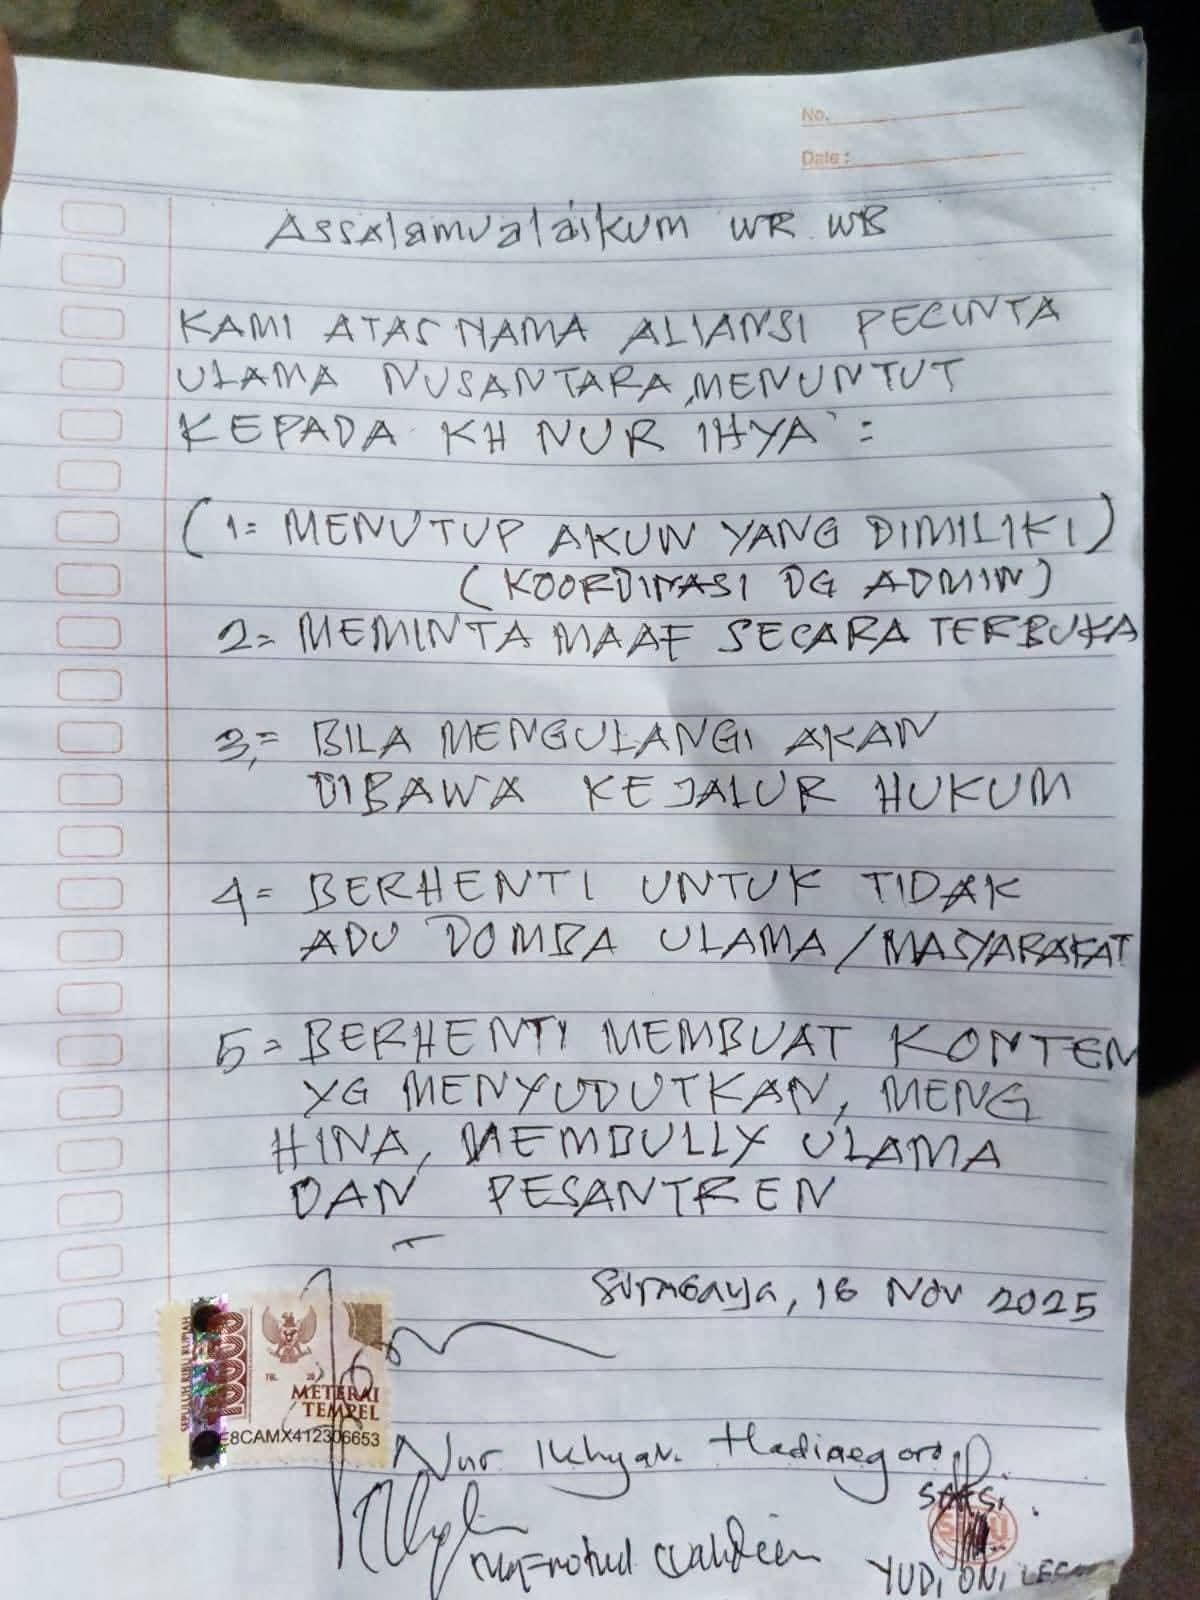 No.
Date :
Assalamualaikum WR. WB
KAMI ATAS NAMA ALIANSI PECINTA
ULAMA NUSANTARA, MENUNTUT
KEPADA KH NUR IHYA' =
(1= MENUTUP AKUN YANG DIMILIKI)
(KOORDINASI DG ADMIN)
2= MEMINTA MAAF SECARA TERBUKA
3,= BILA MENGULANGI AKAN
DIBAWA KEJALUR HUKUM
4= BERHENTI UNTUK TIDAK
ADU DOMBA ULAMA / MASYARAKAT
5= BERHENTI MEMBUAT KONTEN
YG MENYUDUTKAN, MENG
HINA, MEMBULLY ULAMA
DAN PESANTREN
Surabaya, 16 Nov 2025
SEPULUH RIBU RUPIAH
10000
TGL. 20
METERAI
TEMPEL
E8CAMX412306653
Nur Ikhyak Hadinegoro
SAKSI
YUDI ONI